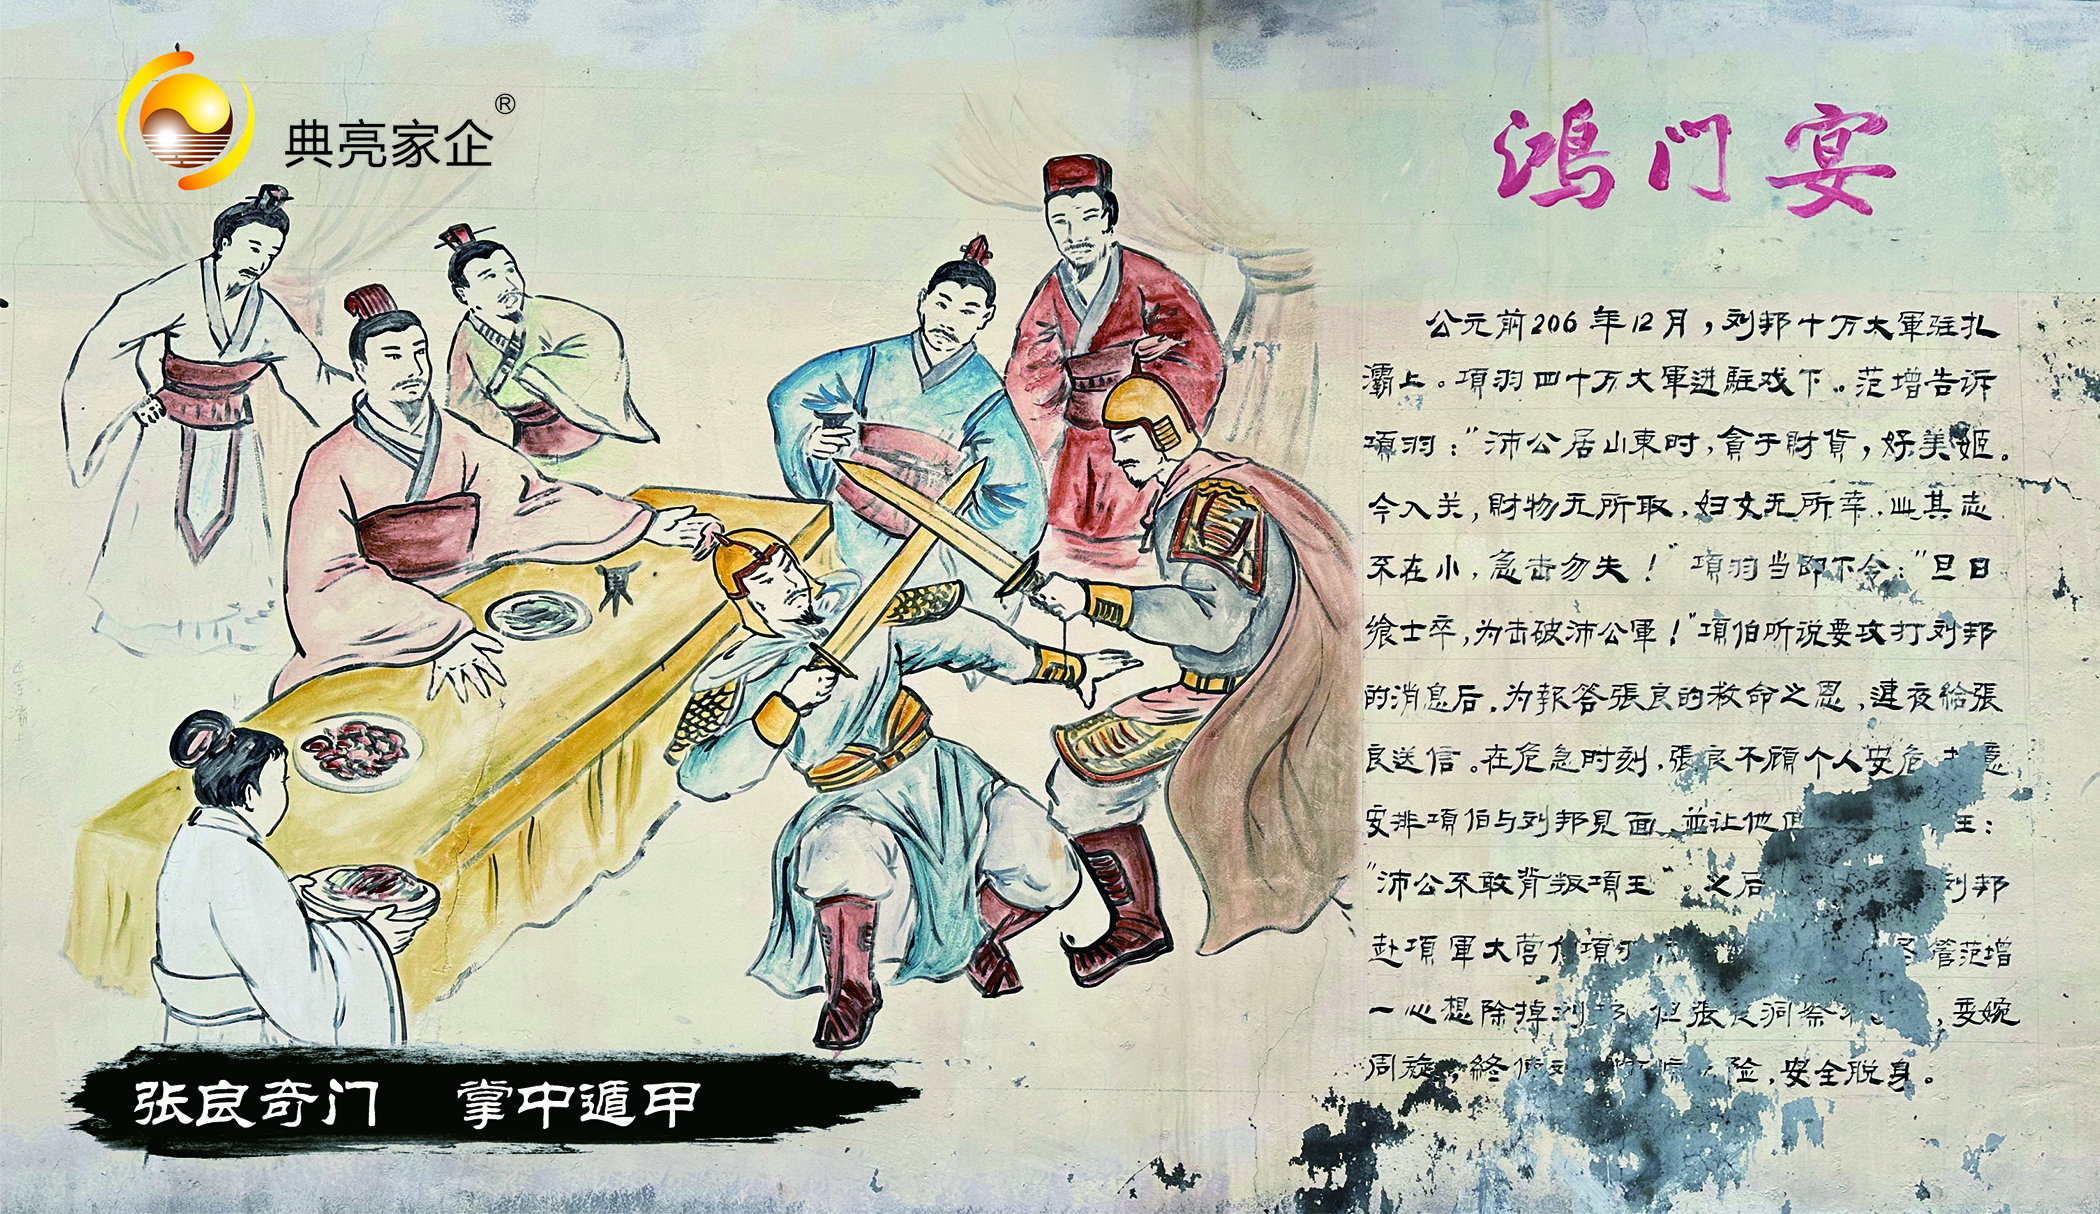 典亮家企®
鸿门宴
公元前206年12月，刘邦十万大軍驻扎
灞上。項羽四十万大軍进駐戏下。范增告诉
項羽："沛公居山東时，貪于財貨，好美姬。
今入关，財物无所取，妇女无所幸，此其志
不在小，急击勿失！"項羽当即下令："旦日
飨士卒，为击破沛公軍！"項伯听说要攻打刘邦
的消息后，为報答張良的救命之恩，連夜給張
良送信。在危急时刻，張良不顧个人安危
安排項伯与刘邦見面，並让他 王：
"沛公不敢背叛項王"。之后 刘邦
赴項軍大营 項 管范增
一心想除掉刘 但張良洞察 ，委婉
周旋，終 险，安全脱身。
张良奇门 掌中遁甲